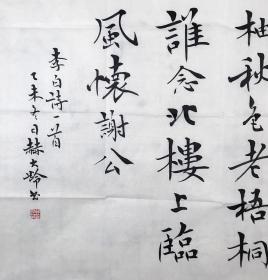 柚秋色老梧桐
誰念北樓上臨
風懷謝公
李白詩一首
乙未冬日赫大齡書